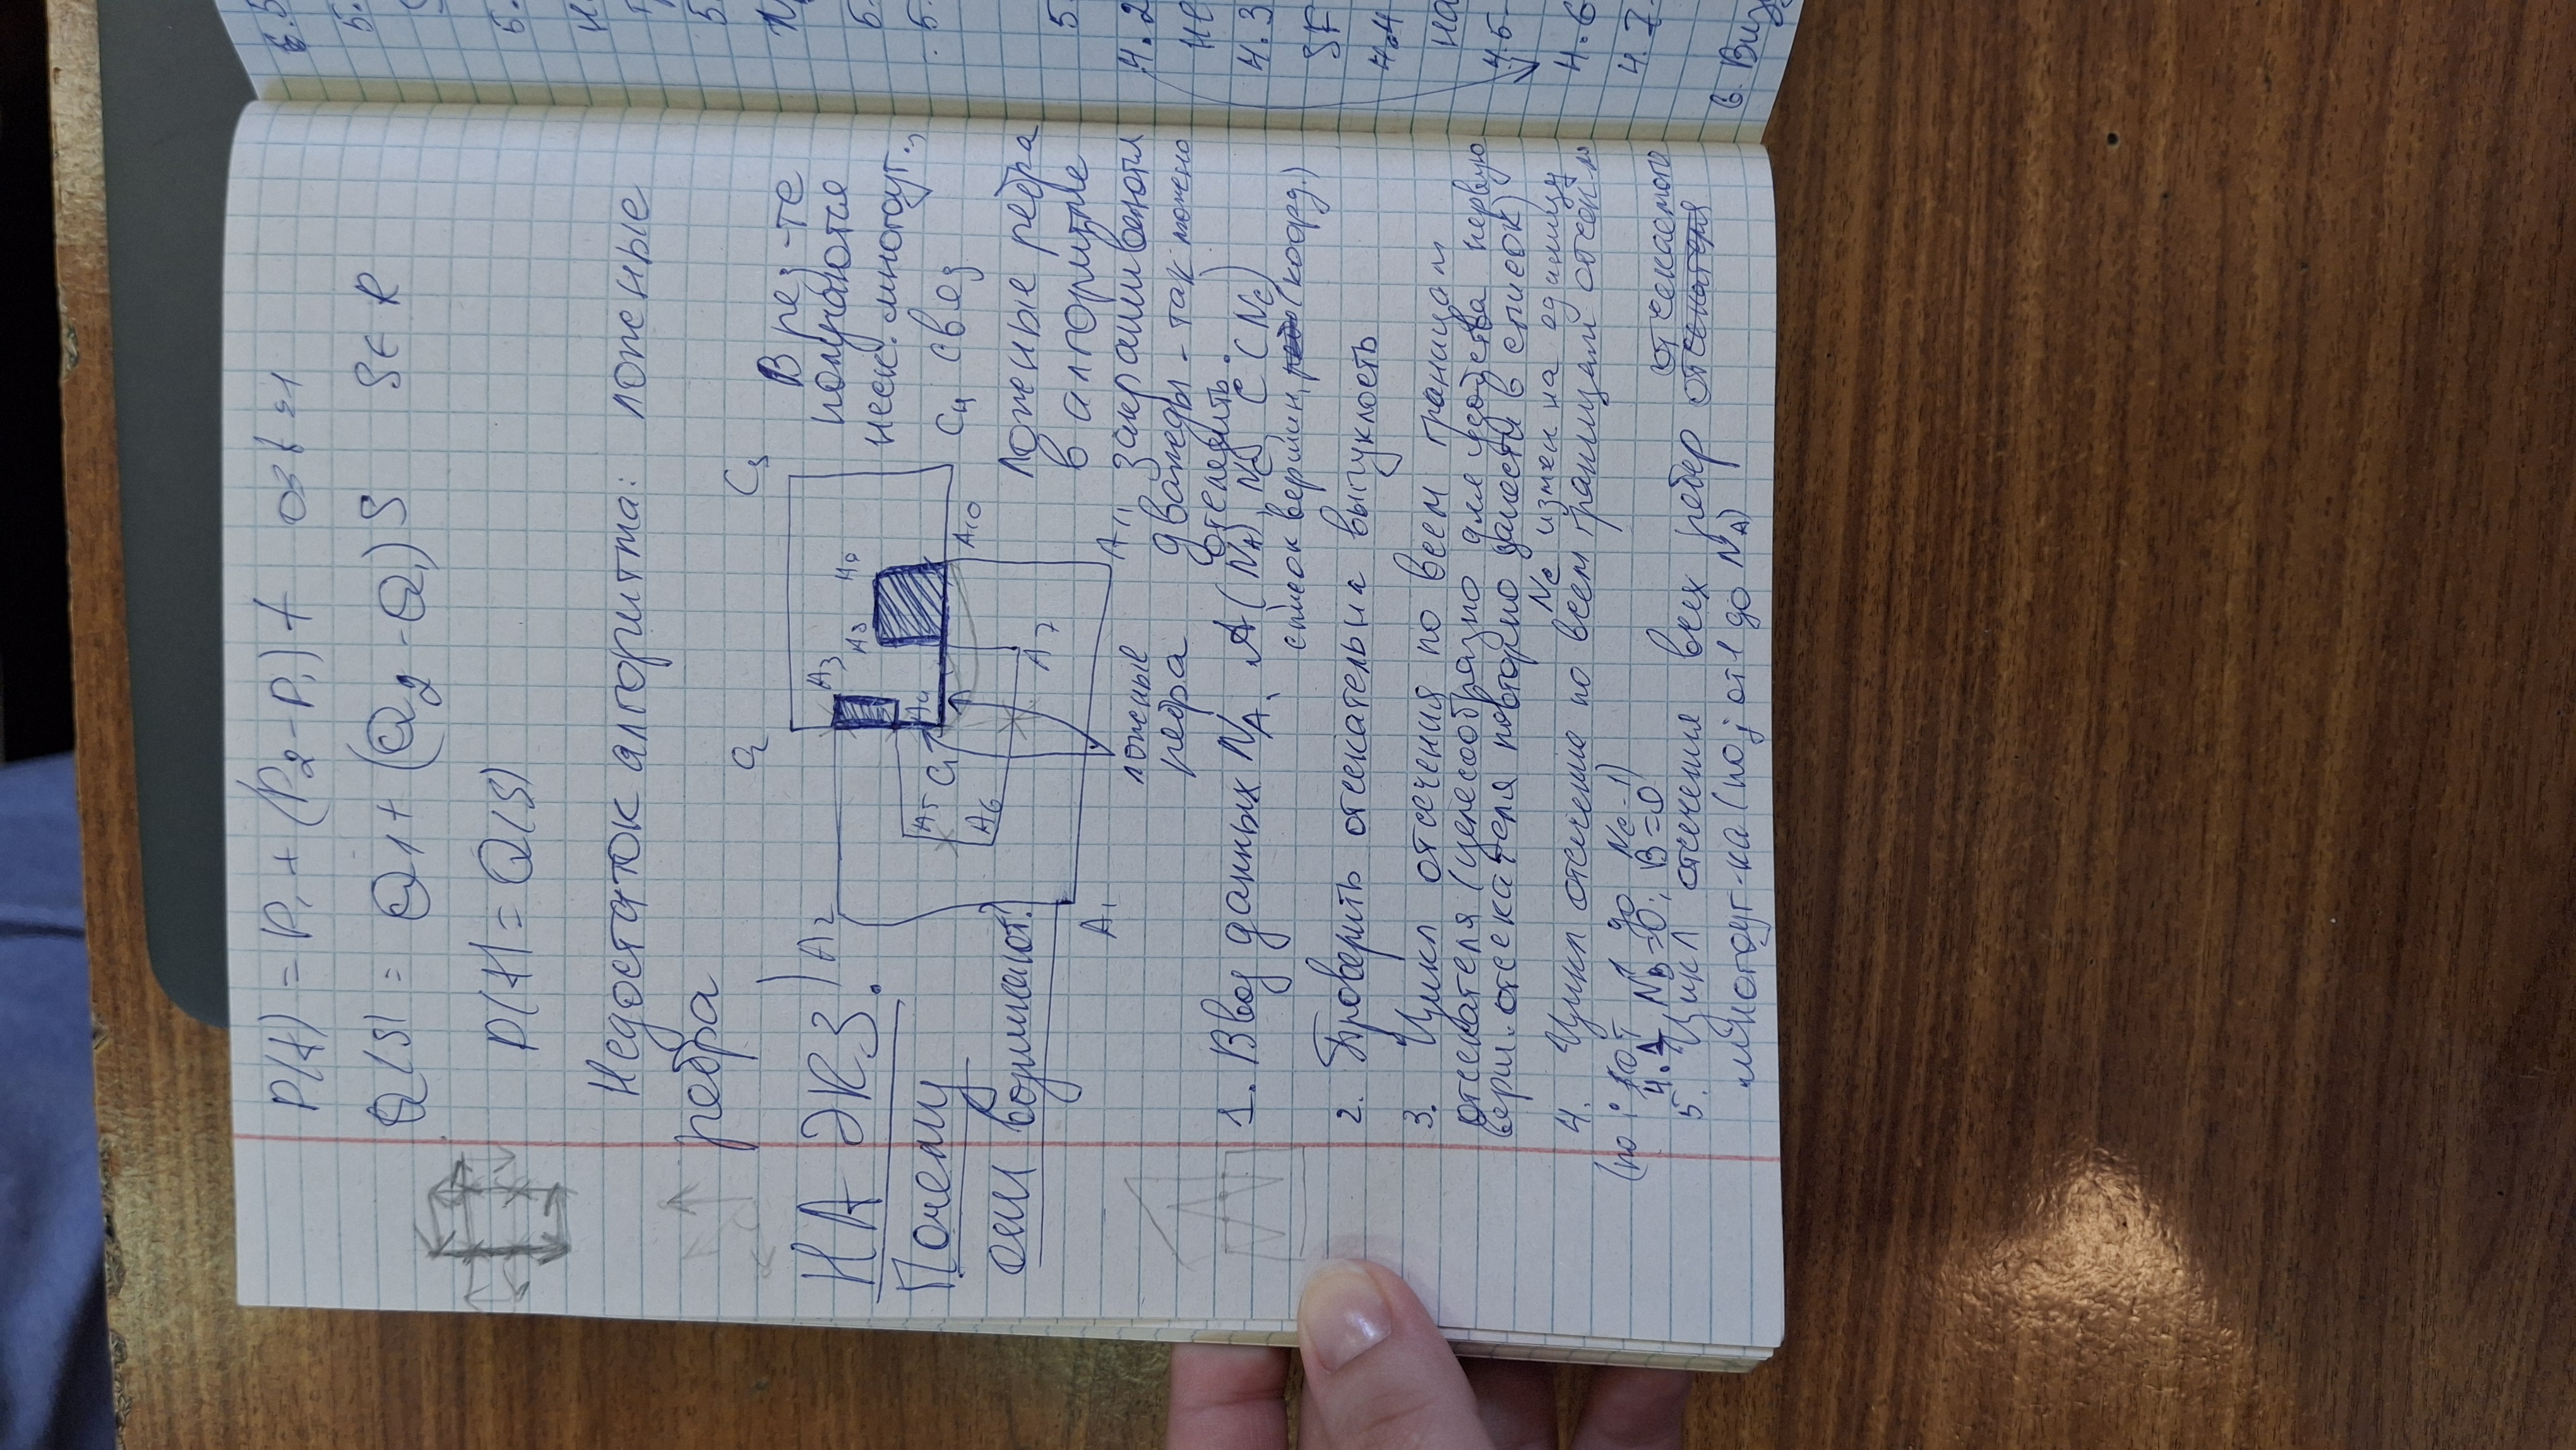 P(t) = P₁ + (P₂ - P₁) t 0≤t≤1
Q(S) = Q1 + (Q₂ - Q₁) S S ∈ R
P(t) = Q(S)
Недостаток алгоритма: ложные
ребра
НА ЭКЗ.!
Почему
они возникают?
C₂
C₃
A₂
A₃
A₈
A₉
A₅
C₁
A₄
A₆
A₁₀
C₄
A₇
A₁
A₁₁
ложные
ребра
В рез-те
получаются
неск. многоуг.,
связ
Ложные ребра
в алгоритме
закрашиваются
дважды - так можно
отследить.
1. Ввод данных N_A, A(N_A), N_C, C(N_C)
список вершин, (коорд.)
2. Проверить отсекатель на выпуклость
3. Цикл отсечения по всем границам
отсекателя (целесообразно для удобства первую
верш. отсекателя повторно занести в список)
N_C измен на единицу
4. Цикл отсечения по всем границам отсек-ля
(по i от 1 до N_C-1)
4.1 N_B=0; B=0
5. Цикл отсечения всех ребер отсекателя
отсекаемого
многоуг-ка (по j от 1 до N_A)
5.
5.
5.
5.
4.2
не
4.3
SF
4.4
на
4.5
4.6
4.7
6. Виз